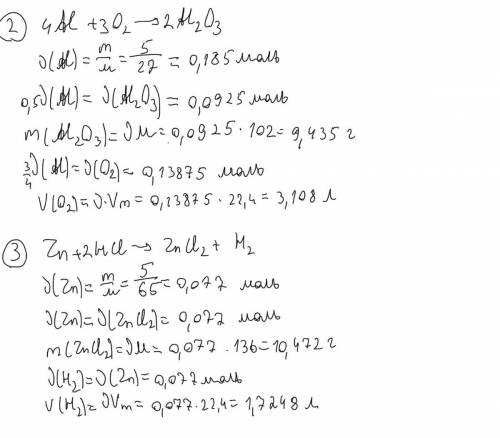 ② 4Al + 3O₂ → 2Al₂O₃
ν(Al) = m/μ = 5/27 = 0,185 моль
0,5ν(Al) = ν(Al₂O₃) = 0,0925 моль
m(Al₂O₃) = νμ = 0,0925 · 102 = 9,435 г
3/4 ν(Al) = ν(O₂) = 0,13875 моль
V(O₂) = ν·Vm = 0,13875 · 22,4 = 3,108 л
③ Zn + 2HCl → ZnCl₂ + H₂
ν(Zn) = m/μ = 5/65 = 0,077 моль
ν(Zn) = ν(ZnCl₂) = 0,077 моль
m(ZnCl₂) = νμ = 0,077 · 136 = 10,472 г
ν(H₂) = ν(Zn) = 0,077 моль
V(H₂) = νVm = 0,077 · 22,4 = 1,7248 л